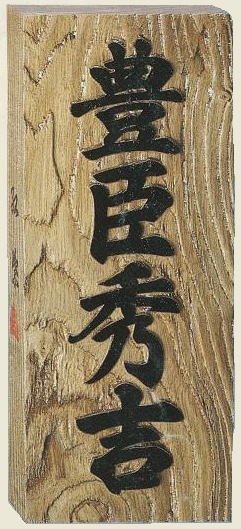 豊臣秀吉